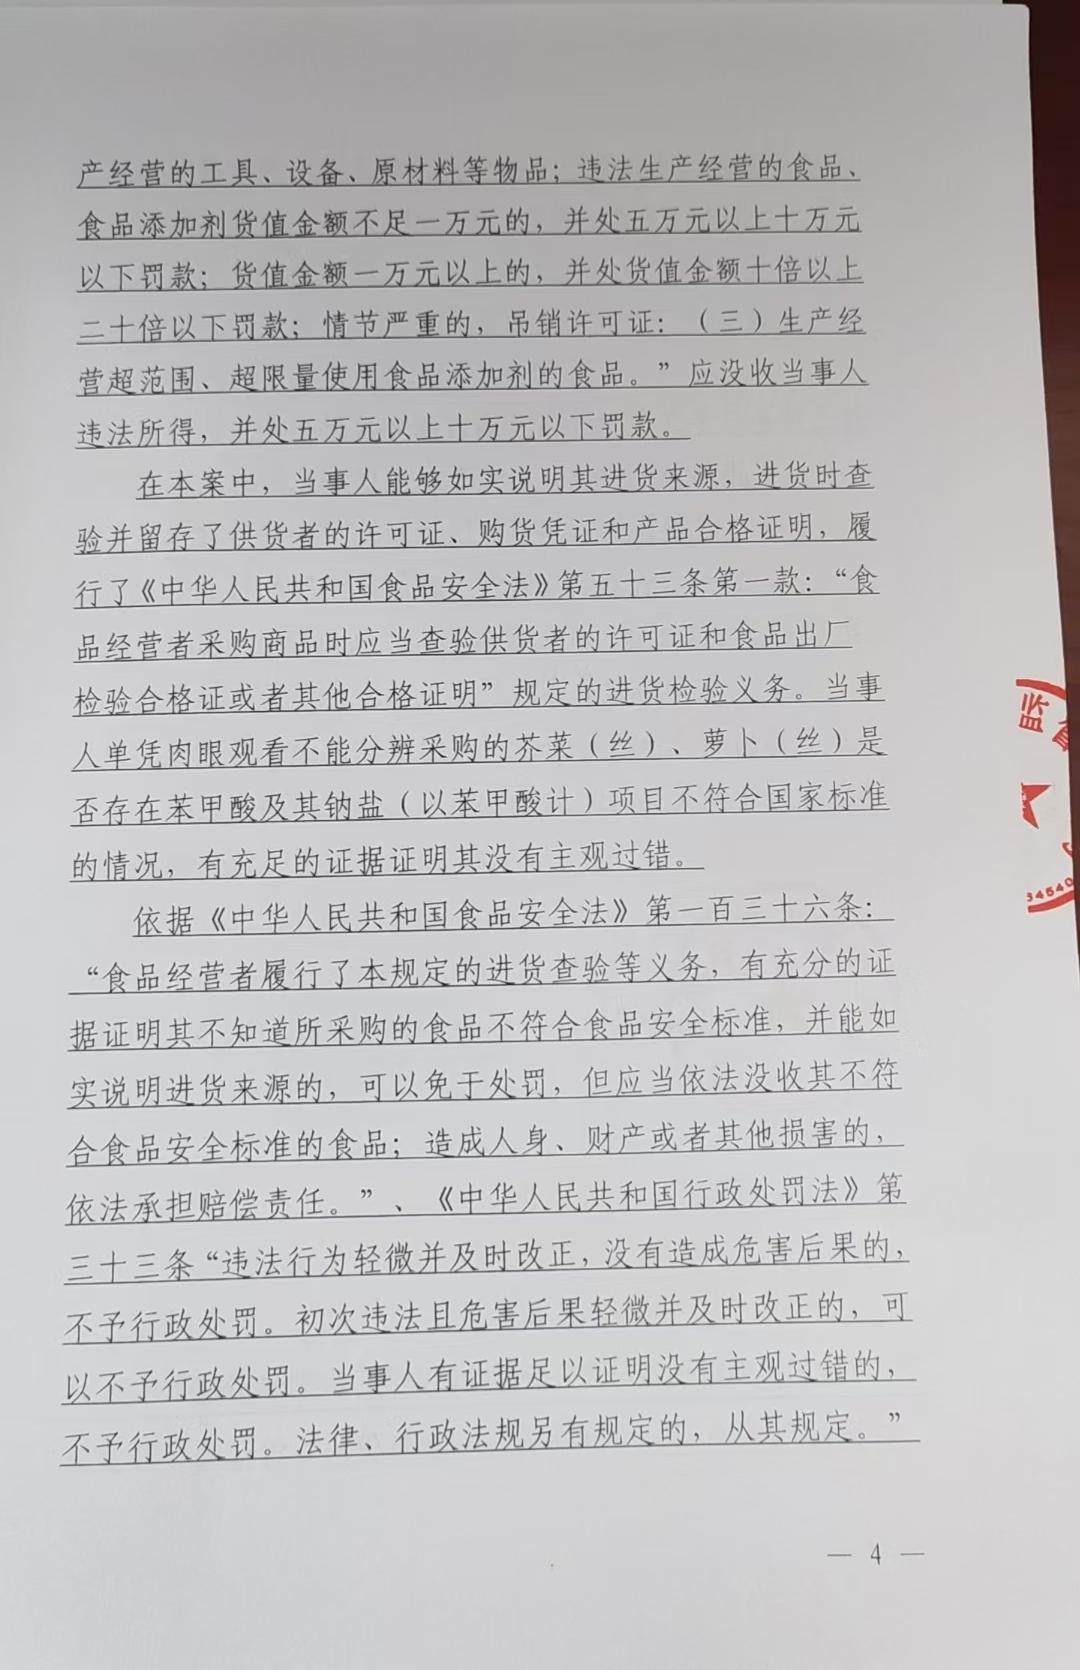 产经营的工具、设备、原材料等物品；违法生产经营的食品、
食品添加剂货值金额不足一万元的，并处五万元以上十万元
以下罚款；货值金额一万元以上的，并处货值金额十倍以上
二十倍以下罚款；情节严重的，吊销许可证：（三）生产经
营超范围、超限量使用食品添加剂的食品。”应没收当事人
违法所得，并处五万元以上十万元以下罚款。
在本案中，当事人能够如实说明其进货来源，进货时查
验并留存了供货者的许可证、购货凭证和产品合格证明，履
行了《中华人民共和国食品安全法》第五十三条第一款：“食
品经营者采购商品时应当查验供货者的许可证和食品出厂
检验合格证或者其他合格证明”规定的进货检验义务。当事
人单凭肉眼观看不能分辨采购的芥菜（丝）、萝卜（丝）是
否存在苯甲酸及其钠盐（以苯甲酸计）项目不符合国家标准
的情况，有充足的证据证明其没有主观过错。
依据《中华人民共和国食品安全法》第一百三十六条：
“食品经营者履行了本规定的进货查验等义务，有充分的证
据证明其不知道所采购的食品不符合食品安全标准，并能如
实说明进货来源的，可以免于处罚，但应当依法没收其不符
合食品安全标准的食品；造成人身、财产或者其他损害的，
依法承担赔偿责任。”、《中华人民共和国行政处罚法》第
三十三条“违法行为轻微并及时改正，没有造成危害后果的，
不予行政处罚。初次违法且危害后果轻微并及时改正的，可
以不予行政处罚。当事人有证据足以证明没有主观过错的，
不予行政处罚。法律、行政法规另有规定的，从其规定。”
— 4 —
监督
34540